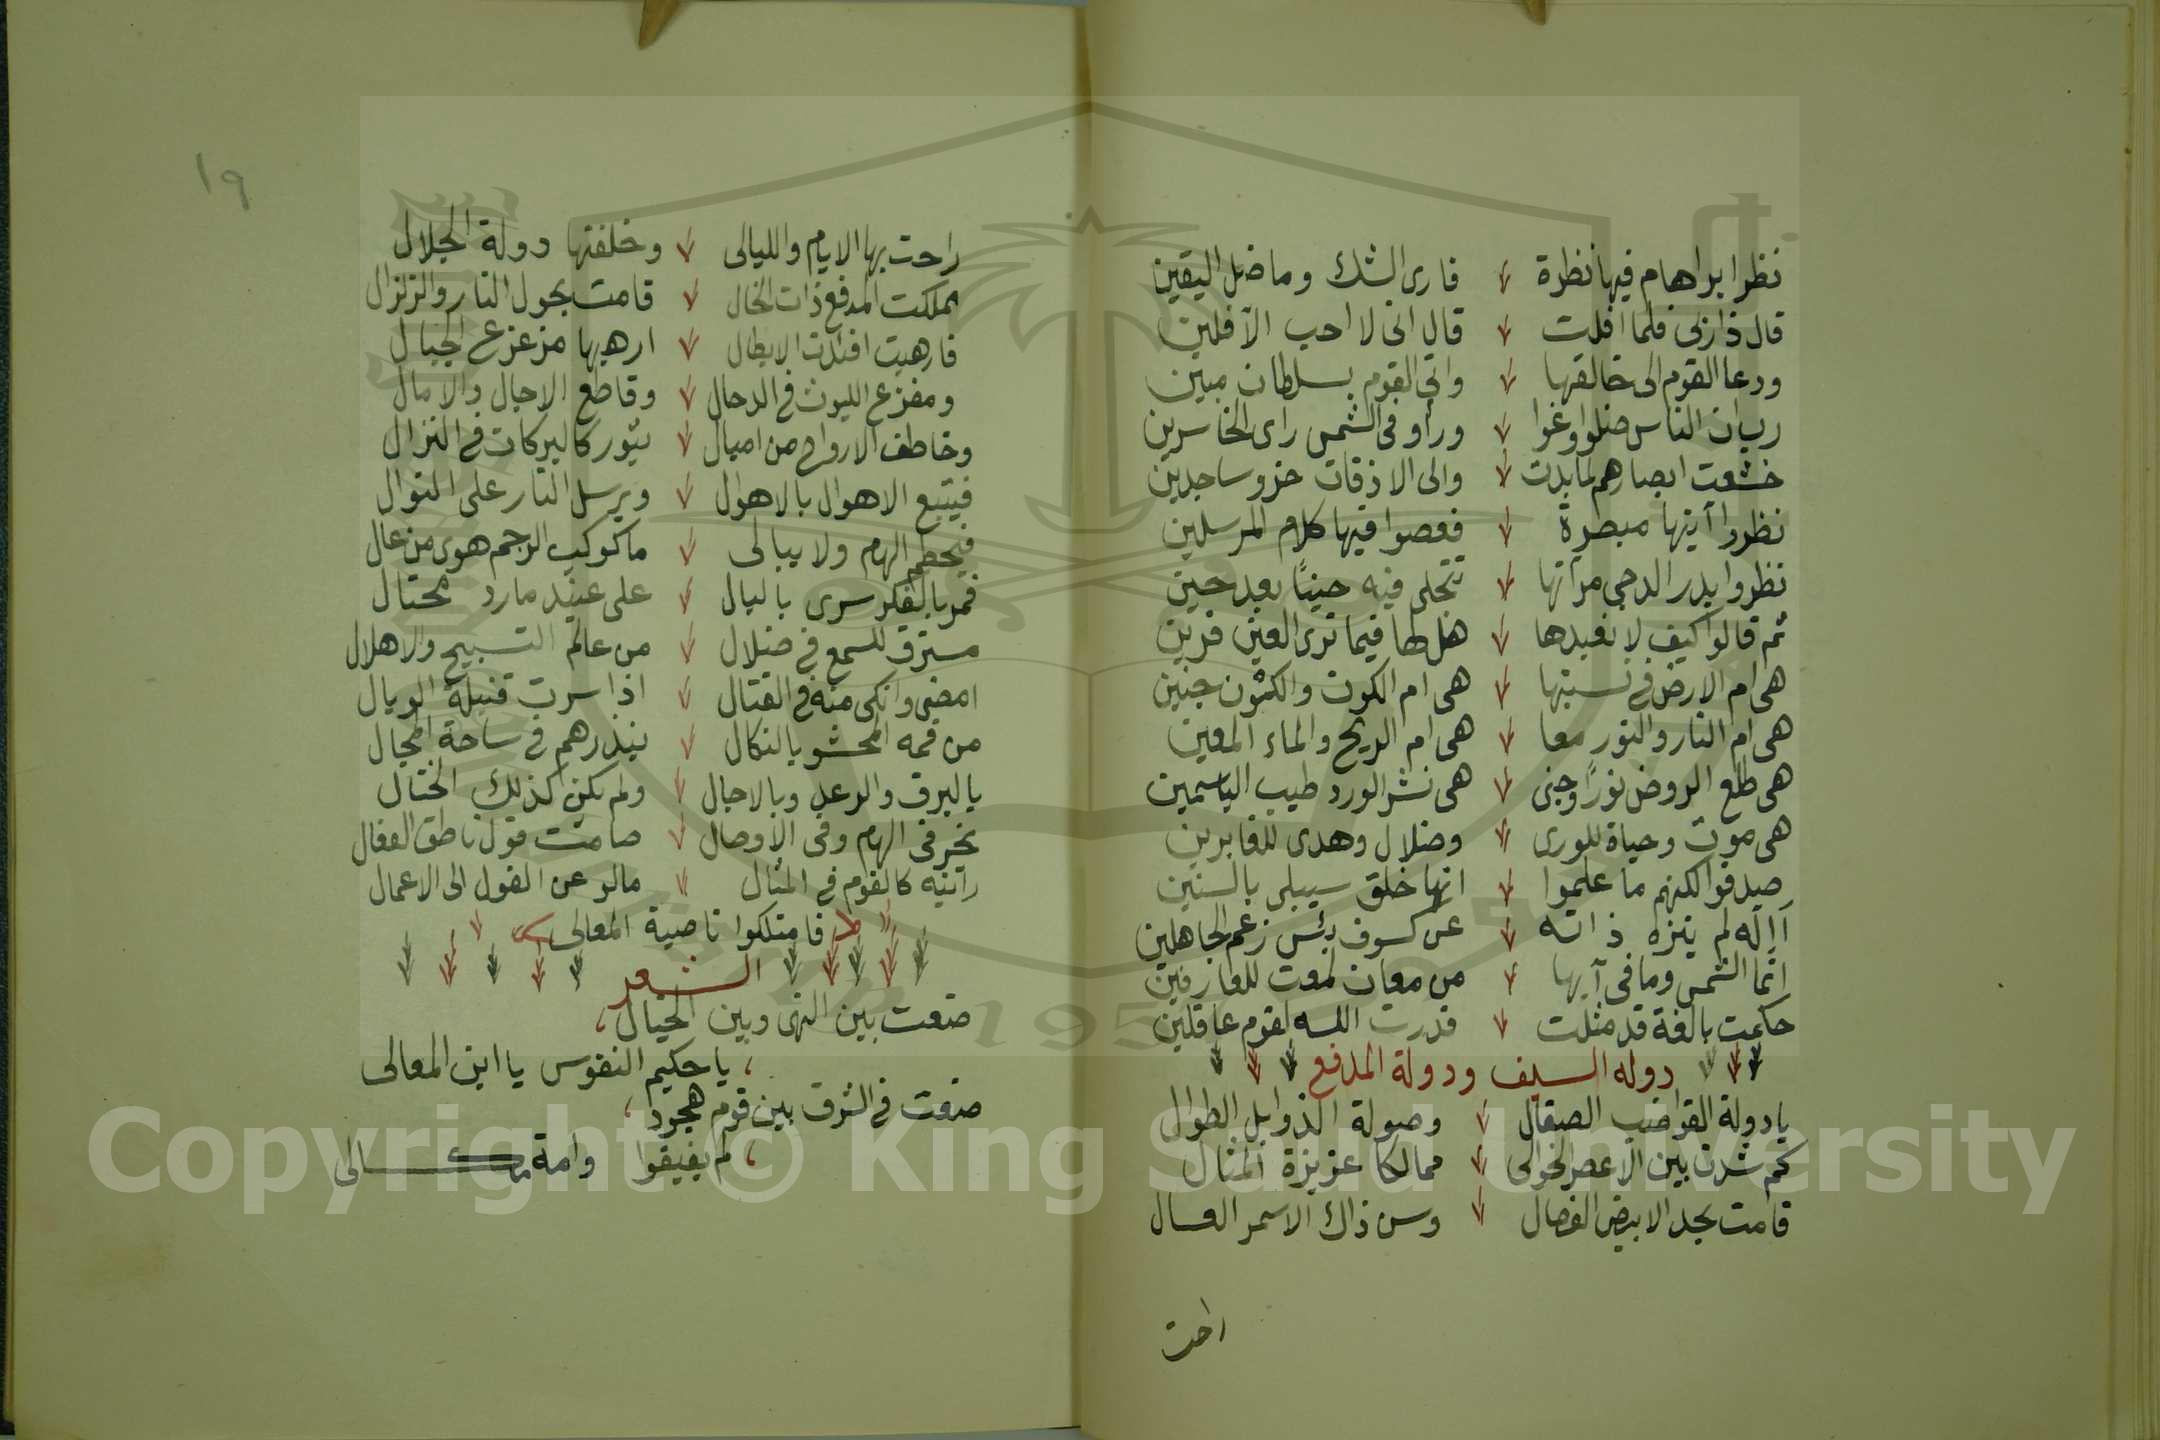 نظر ابراهام فيها نظرة فارى الشك وما ضل اليقين
قال ذا ربى فلما افلت قال انى لا احب الآفلين
ودعا القوم الى خالقها واتى القوم بسلطان مبين
رب ان الناس ضلوا وغووا ورأو فى الشمس راى الخاسرين
خشعت ابصارهم لما بدت والى الاذقان خرو ساجدين
نظروا آيتها مبصرة فعصوا فيها كلام المرسلين
نظروا بدر الدجى مرآتها تتجلى فيه حينًا بعد حين
ثم قالوا كيف لا نعبدها هل لها فيما ترى العين قرين
هى ام الارض فى نسبتها هى ام الكون والكون جنين
هى ام النار والنور معا هى ام الريح والماء المعين
هى طلع الروض نورًا وجنى هى نشر الورد طيب الياسمين
هى موت وحياة للورى وضلال وهدى للغابرين
صدقوا لكنهم ما علموا انها خلق سيبلى بالسنين
أ اله لم ينزه ذاته عن كسوف بئس زعم الجاهلين
انما الشمس وما فى آيها من معان لمعت للعارفين
حكمت بالغة قد مثلت قدرت الله لقوم عاقلين
دولة السيف ودولة المدفع
يا دولة القواضب الصقال وصولة الذوابل الطوال
كم شدت بين الاعصر الخوالى ممالكا عزيزة المثال
قامت بحد الابيض الفصال وسن ذاك الاسمر العسال
راحت
١٩
راحت بها الايام والليالى وخلفتها دولة الجلال
بملكت المدفع ذات الخال قامت بحول النار والزلزال
فارهبت افئدت الابطال ارهبها مزعزع الجبال
ومفزع الليوث فى الدحال وقاطع الاجال والامال
وخاطف الارواح من اميال يثور كالبركات فى النزال
فيتبع الاهوال بالاهوال ويرسل النار على التوال
فيحطم الهام ولا يبالى ما كوكب الرجم هوى من عال
فمر بالفكر سرى بالبال على عنيد مارد محتال
مسترق للسمع فى ضلال من عالم التسبيح والاهلال
امضى وانكى منه فى القتال اذا سرت قنبلة الوبال
من فمه المحشو بالنكال ينذرهم فى ساحة المجال
بالبرق والرعد وبالاجال ولم يكن كذلك الختال
يخرق الهام وفى الاوصال صامت قول ناطق الفعال
رايته كالقوم فى المثال مالو عن القول الى الاعمال
فامتلكوا ناصية المعالى
الشعر
ضعت بين النهى وبين الخيال،
، يا حكيم النفوس يا ابن المعالى
ضعت فى الشرق بين قوم هجود،
، لم يفيقوا وامة مكسالى
Copyright © King Saud University
1957